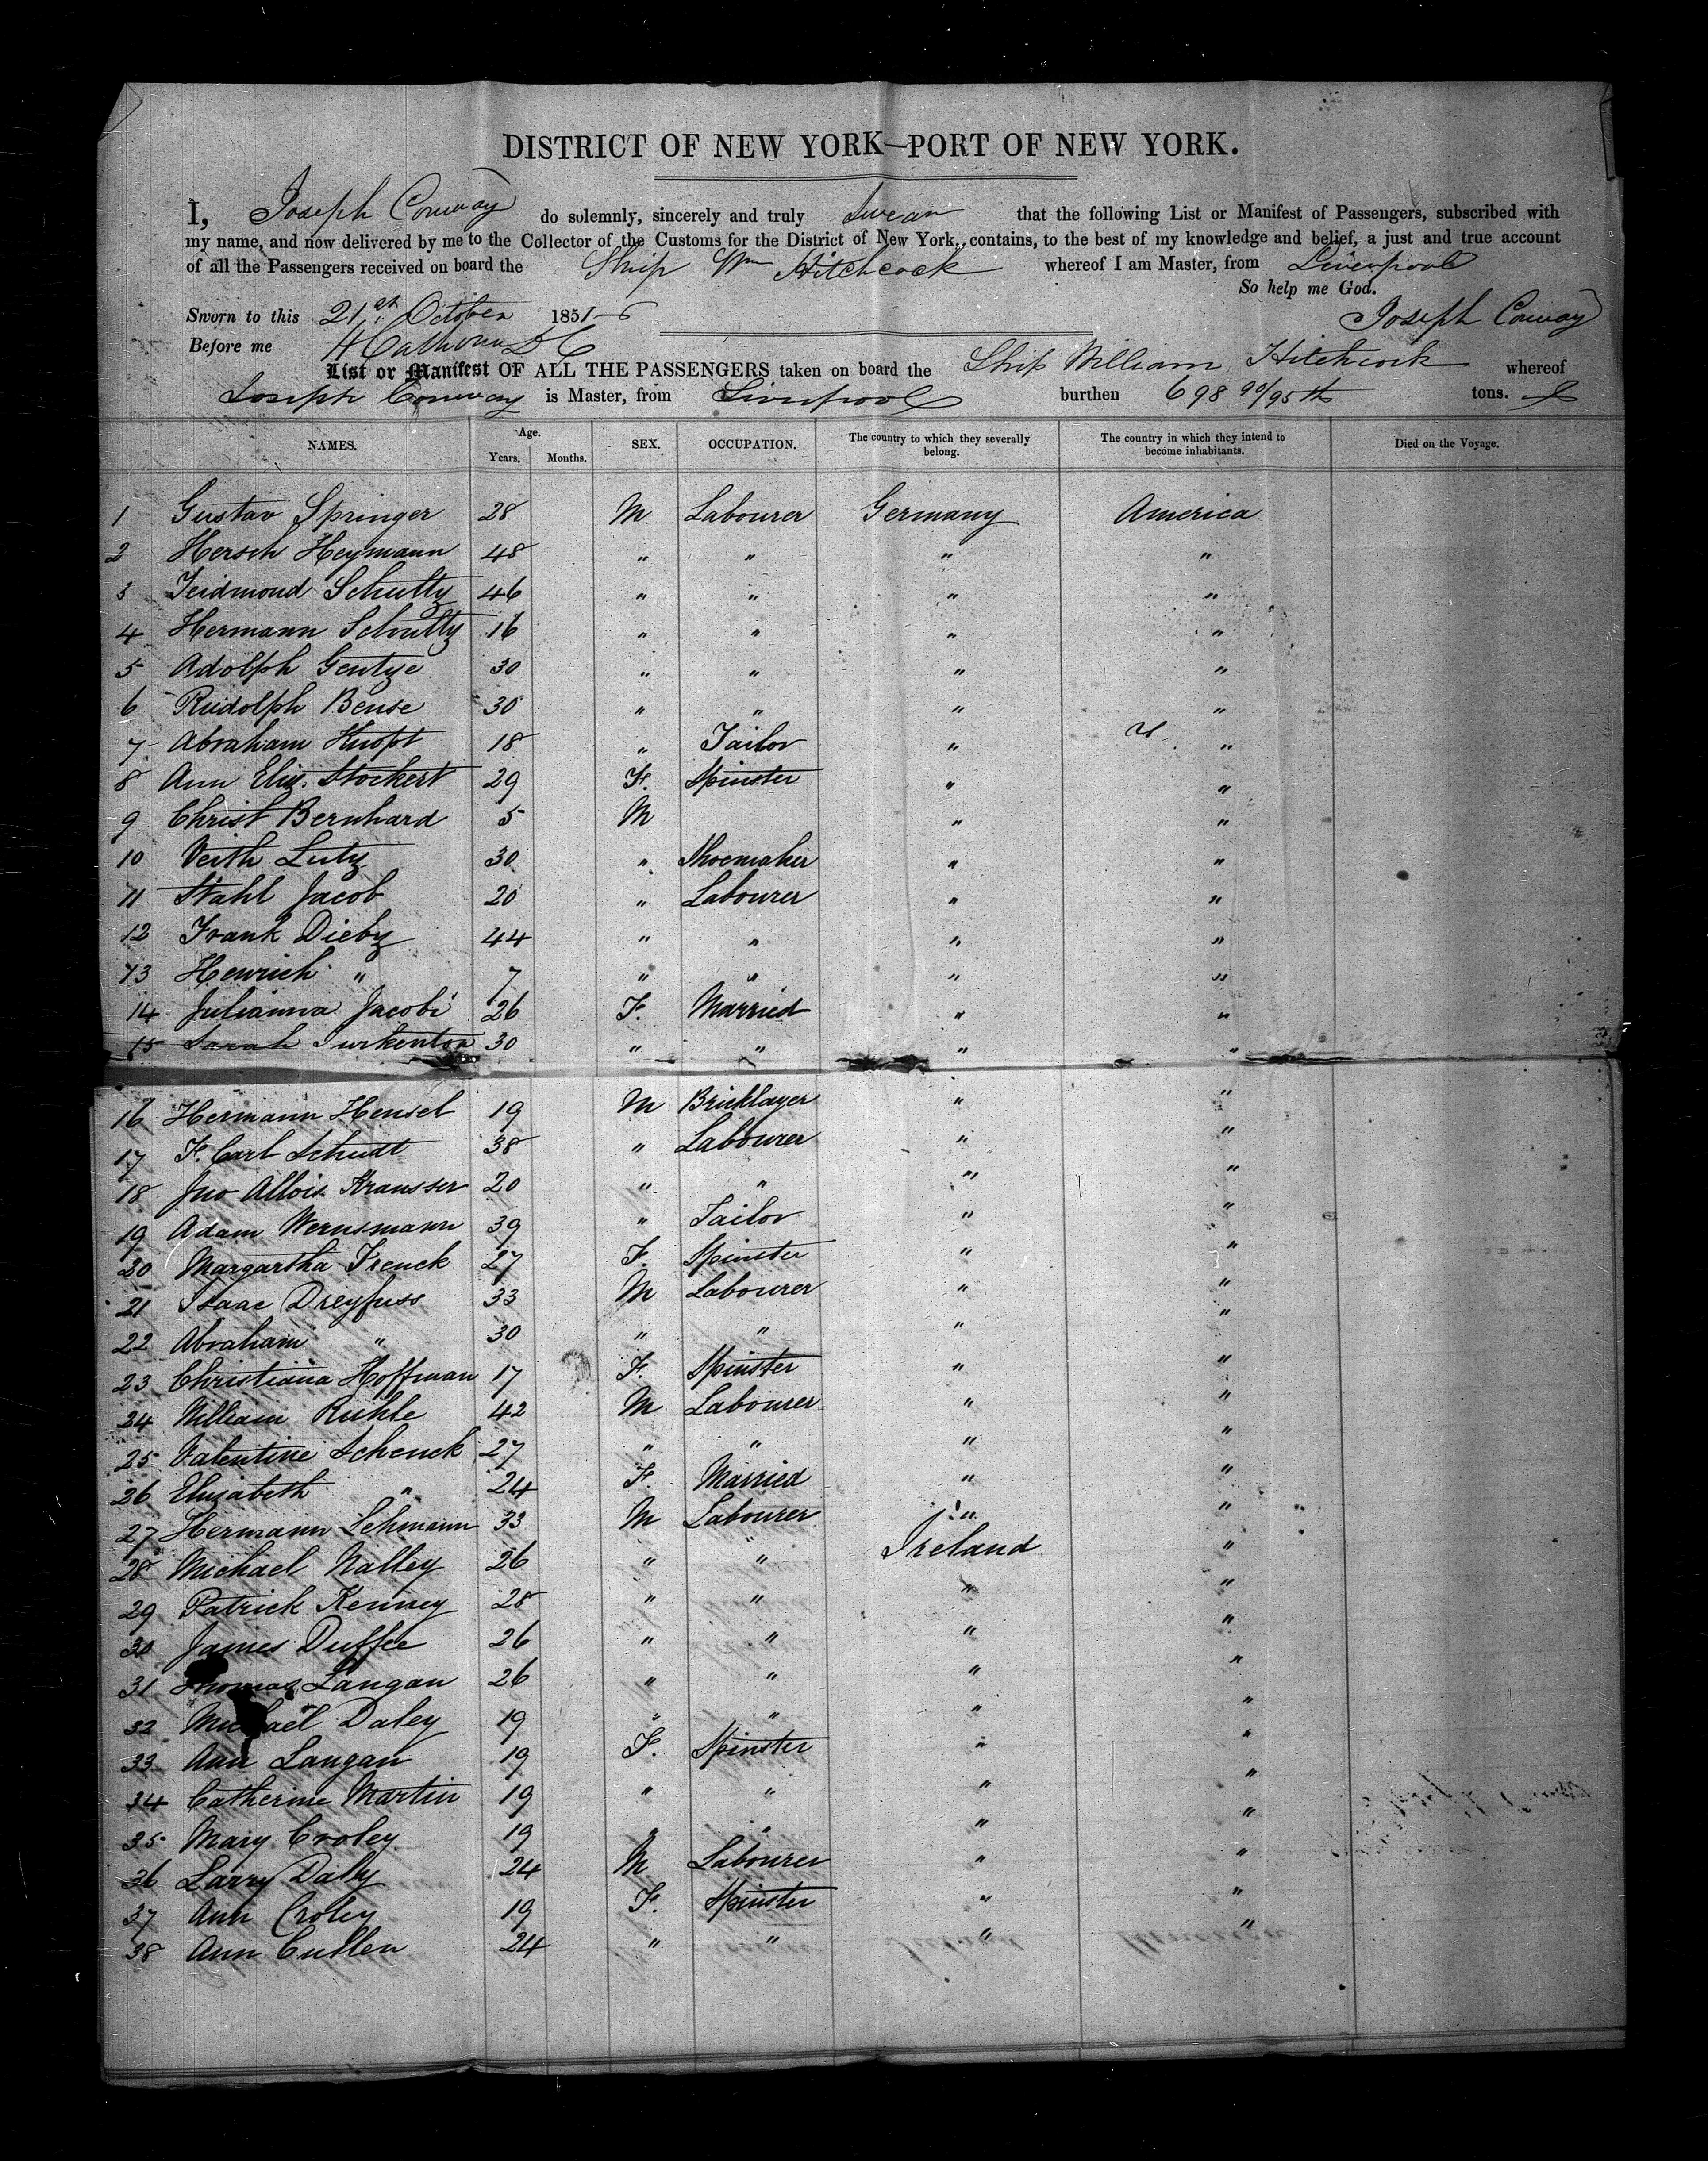 DISTRICT OF NEW YORK—PORT OF NEW YORK.
I, Joseph Conway do solemnly, sincerely and truly Swear that the following List or Manifest of Passengers, subscribed with
my name, and now delivered by me to the Collector of the Customs for the District of New York, contains, to the best of my knowledge and belief, a just and true account
of all the Passengers received on board the Ship Wm Hitchcock whereof I am Master, from Liverpool
So help me God.
Sworn to this 21st October 1851 Joseph Conway
Before me
List or Manifest OF ALL THE PASSENGERS taken on board the Ship William Hitchcock whereof
Joseph Conway is Master, from Liverpool burthen 698 90/95th tons.
NAMES. Age. Years. Months. SEX. OCCUPATION. The country to which they severally belong. The country in which they intend to become inhabitants. Died on the Voyage.
1 Gustav Springer 28 M Labourer Germany America
2 Hersch Heymann 48 " " " "
3 Schultz 46 " " " "
4 Hermann Schultz 16 " " " "
5 Adolph Gentze 30 " " " "
6 Rudolph Bense 30 " " " "
7 Abraham Knopt 18 " Tailor " "
8 Ann Eliz. Stockert 29 F. Spinster " "
9 Christ Bernhard 5 M " "
10 Veith Lutz 30 " Shoemaker " "
11 Stahl Jacob 20 " Labourer " "
12 Frank Dieby 44 " " " "
13 Henrich " 7 " " " "
14 Julianna Jacobi 26 F. Married " "
15 Sarah Turkenton 30 " " " "
16 Hermann Hensel 19 M Bricklayer " "
17 F. Carl Schudt 38 " Labourer " "
18 Jno Allois Krausser 20 " " " "
19 Adam Wernsmann 39 " Tailor " "
20 Margartha Frenck 27 F. Spinster " "
21 Isaac Dreyfuss 33 M Labourer " "
22 Abraham " 30 " " " "
23 Christiana Hoffman 17 F. Spinster " "
24 William Ruhle 42 M Labourer " "
25 Valentine Schenck 27 " " " "
26 Elizabeth " 24 F. Married " "
27 Hermann Lehmann 33 M Labourer " "
28 Michael Nalley 26 " " Ireland "
29 Patrick Kenney 28 " " " "
30 James Duffee 26 " " " "
31 Thomas Langan 26 " " " "
32 Michael Daley 19 " " " "
33 Ann Langan 19 F. Spinster " "
34 Catherine Martin 19 " " " "
35 Mary Croley 19 " " " "
36 Larry Daly 24 M Labourer " "
37 Ann Croley 19 F. Spinster " "
38 Ann Cullen 24 " " " "